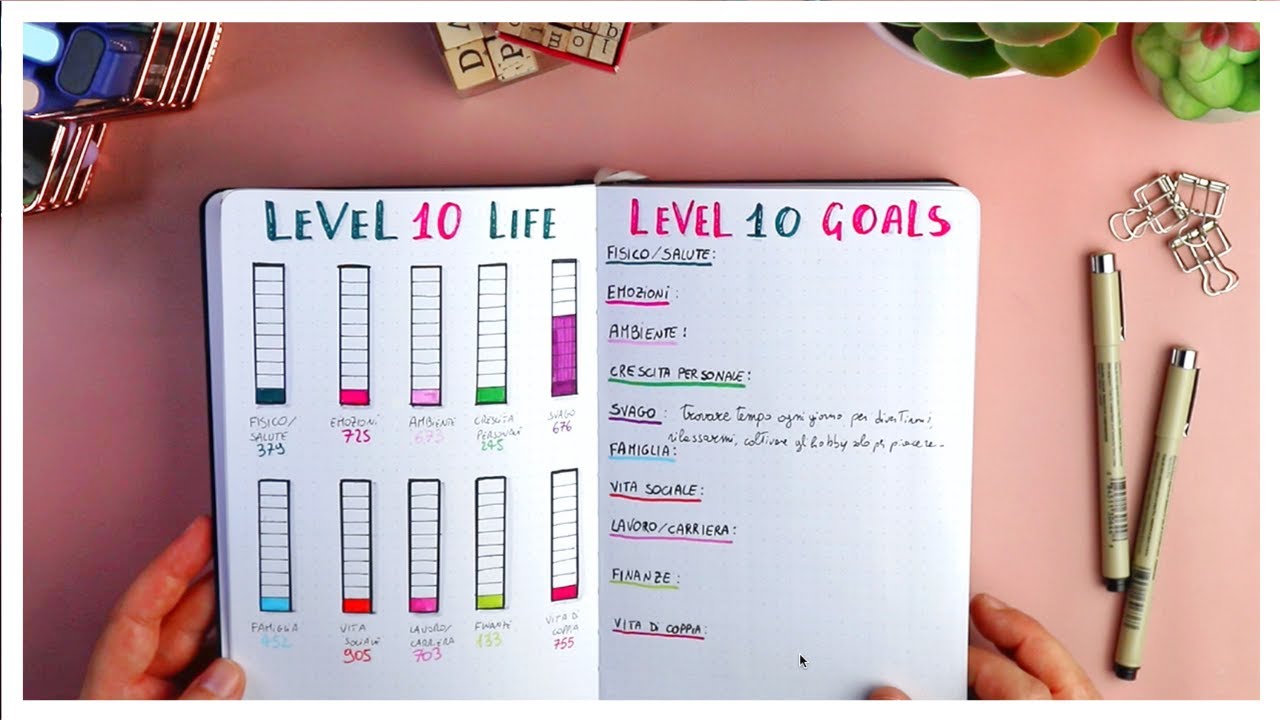 LEVEL 10 LIFE
FISICO/
SALUTE
379
EMOZIONI
725
AMBIENTE
673
CRESCITA
PERSONALE
245
SVAGO
676
FAMIGLIA
452
VITA
SOCIALE
905
LAVORO/
CARRIERA
703
FINANZE
133
VITA DI
COPPIA
755
LEVEL 10 GOALS
FISICO/SALUTE:
EMOZIONI:
AMBIENTE:
CRESCITA PERSONALE:
SVAGO: trovare tempo ogni giorno per divertirmi,
rilassarmi, coltivare gli hobby solo per piacere-
FAMIGLIA:
VITA SOCIALE:
LAVORO/CARRIERA:
FINANZE:
VITA DI COPPIA: